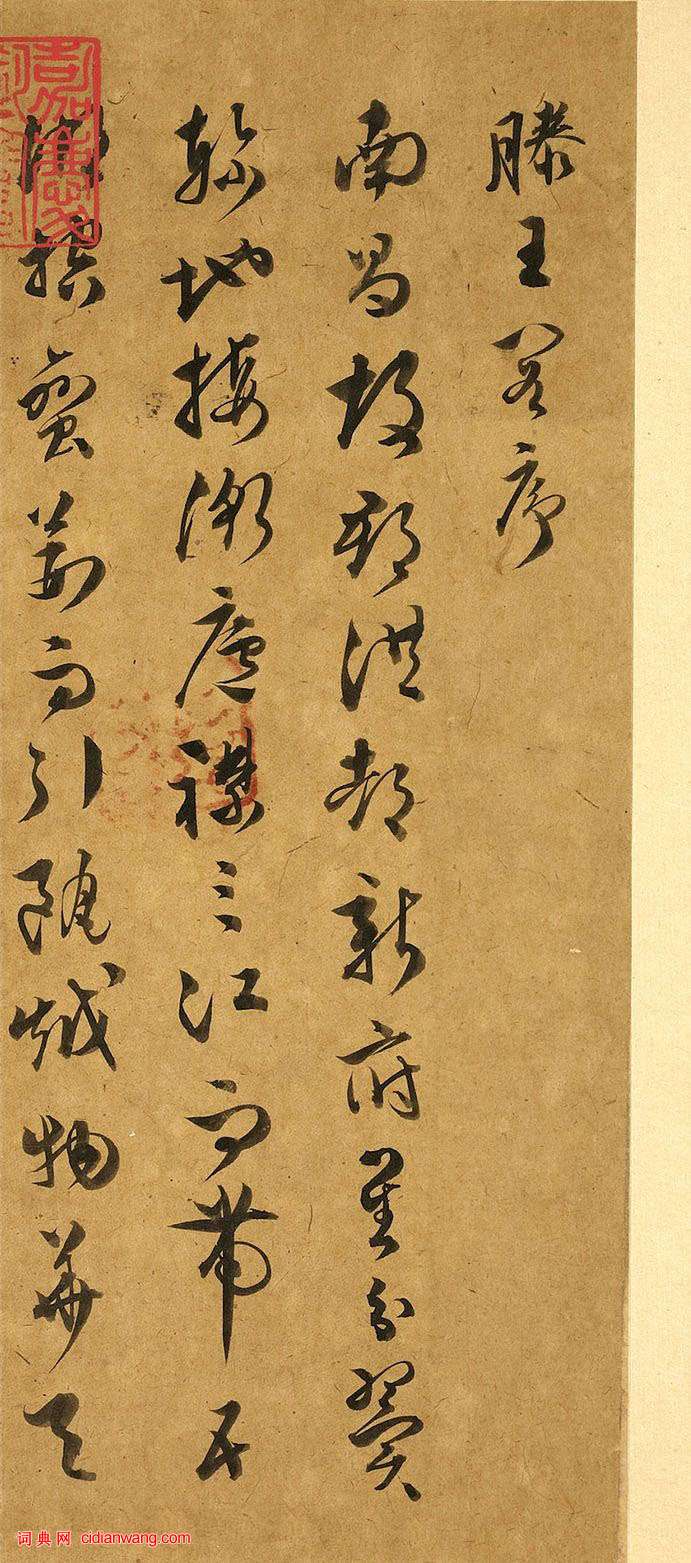 滕王閣序
南昌故郡洪都新府星分翼
軫地接衡廬襟三江而帶五
湖控蠻荊而引甌越物華天
嘉慶
词典网 cidianwang.com